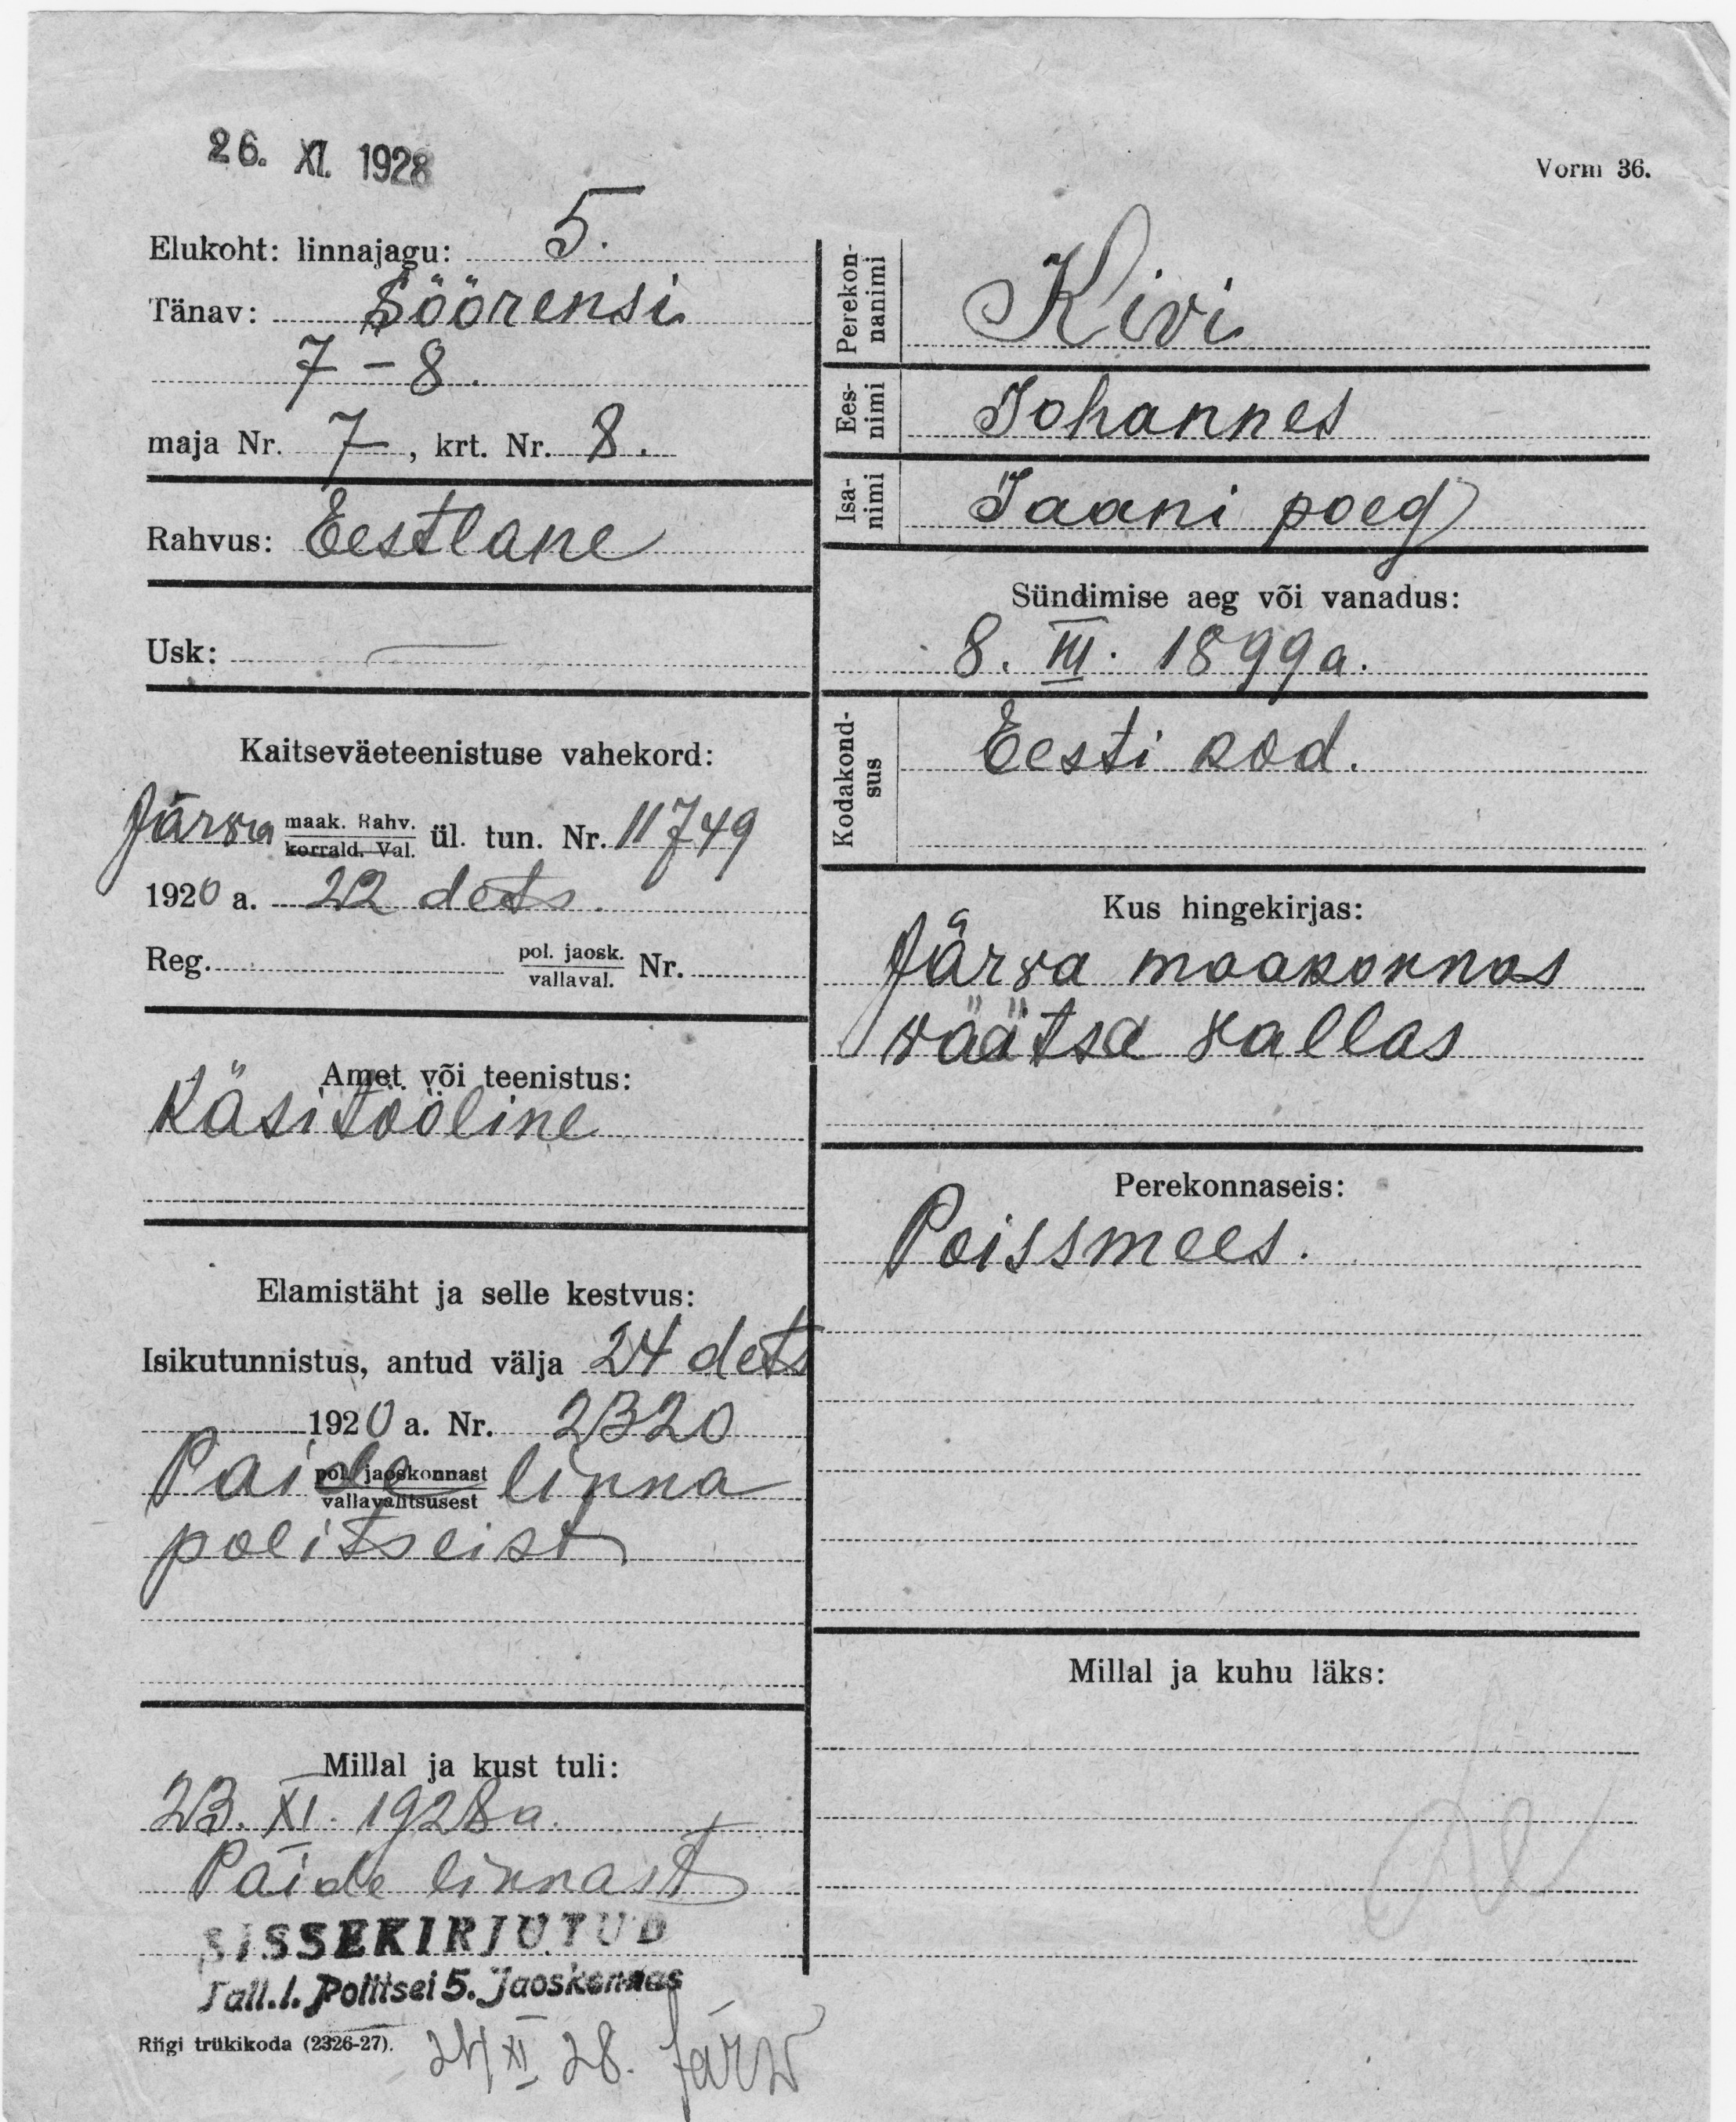 26. XI. 1928
Vorm 36.
Elukoht: linnajagu: 5.
Tänav: Söörensi
7-8.
maja Nr. 7, krt. Nr. 8.
Rahvus: Eestlane
Usk: —
Kaitseväeteenistuse vahekord:
Järva maak. Rahv. korrald. Val. ül. tun. Nr. 11749
1920 a. 22 dets.
Reg. pol. jaosk. vallaval. Nr.
Amet või teenistus:
Käsitööline
Elamistäht ja selle kestvus:
Isikutunnistus, antud välja 24 dets
1920 a. Nr. 2320
Paide pol. jaoskonnast vallavalitsusest linna
politseist
Millal ja kust tuli:
23. XI. 1928 a.
Paide linnast
SISSEKIRJUTUD
Tall.l. Politsei 5. Jaoskonnas
Riigi trükikoda (2326-27).
24 XI 28. Järw
Perekonnanimi Kivi
Eesnimi Johannes
Isanimi Jaani poeg
Sündimise aeg või vanadus:
8. III. 1899 a.
Kodakondsus Eesti kod.
Kus hingekirjas:
Järva maakonnas
väätsa vallas
Perekonnaseis:
Poissmees.
Millal ja kuhu läks: